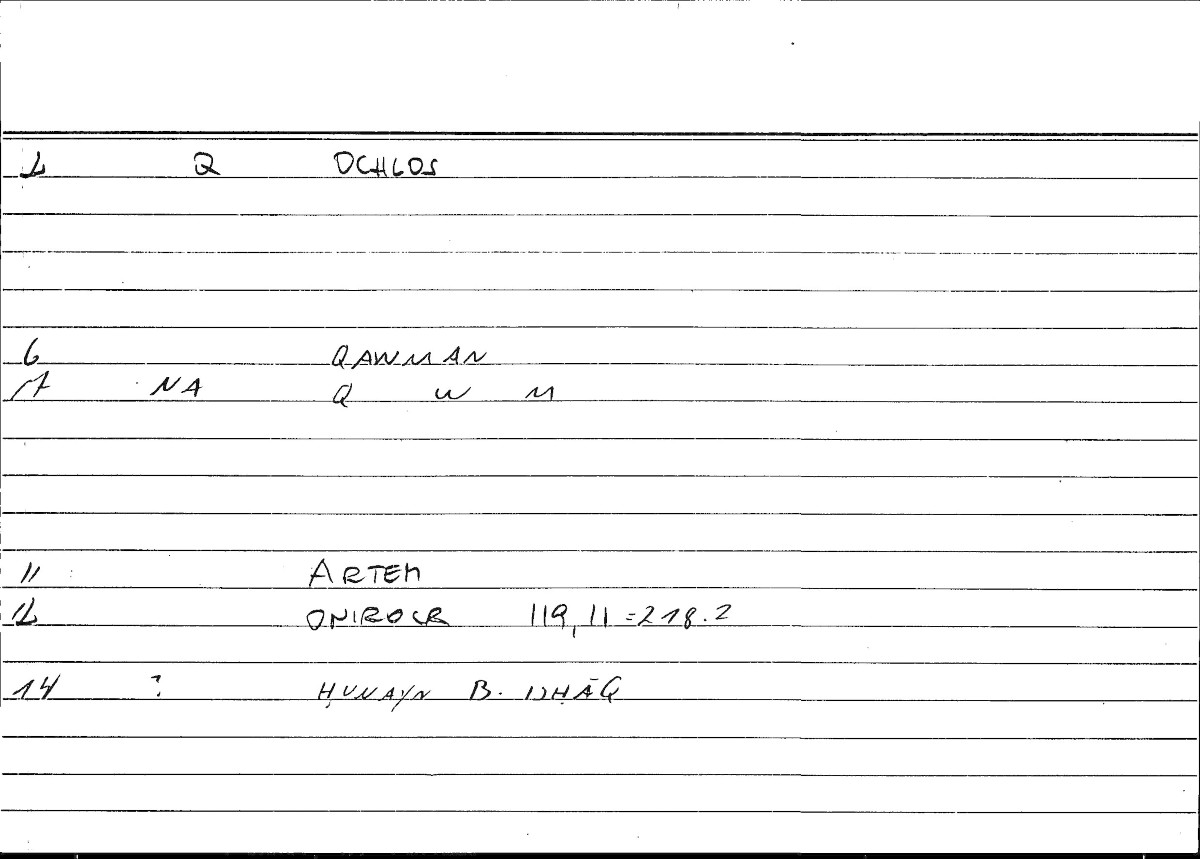 1 Q OCHLOS
6 QAWMAN
7 NA Q W M
11 ARTEM
12 ONIROCR 119,11=218.2
14 ? ḤUNAYN B. ISḤĀQ